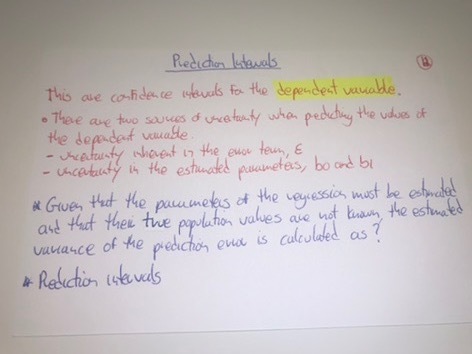 Prediction Intervals
This are confidence intervals for the dependent variable.
• There are two sources of uncertainty when predicting the values of
the dependent variable.
- uncertainty inherent in the error term, ε
- uncertainty in the estimated parameters, b0 and b1
* Given that the parameters of the regression must be estimated
and that their true population values are not known the estimated
variance of the prediction error is calculated as ?
* Prediction intervals